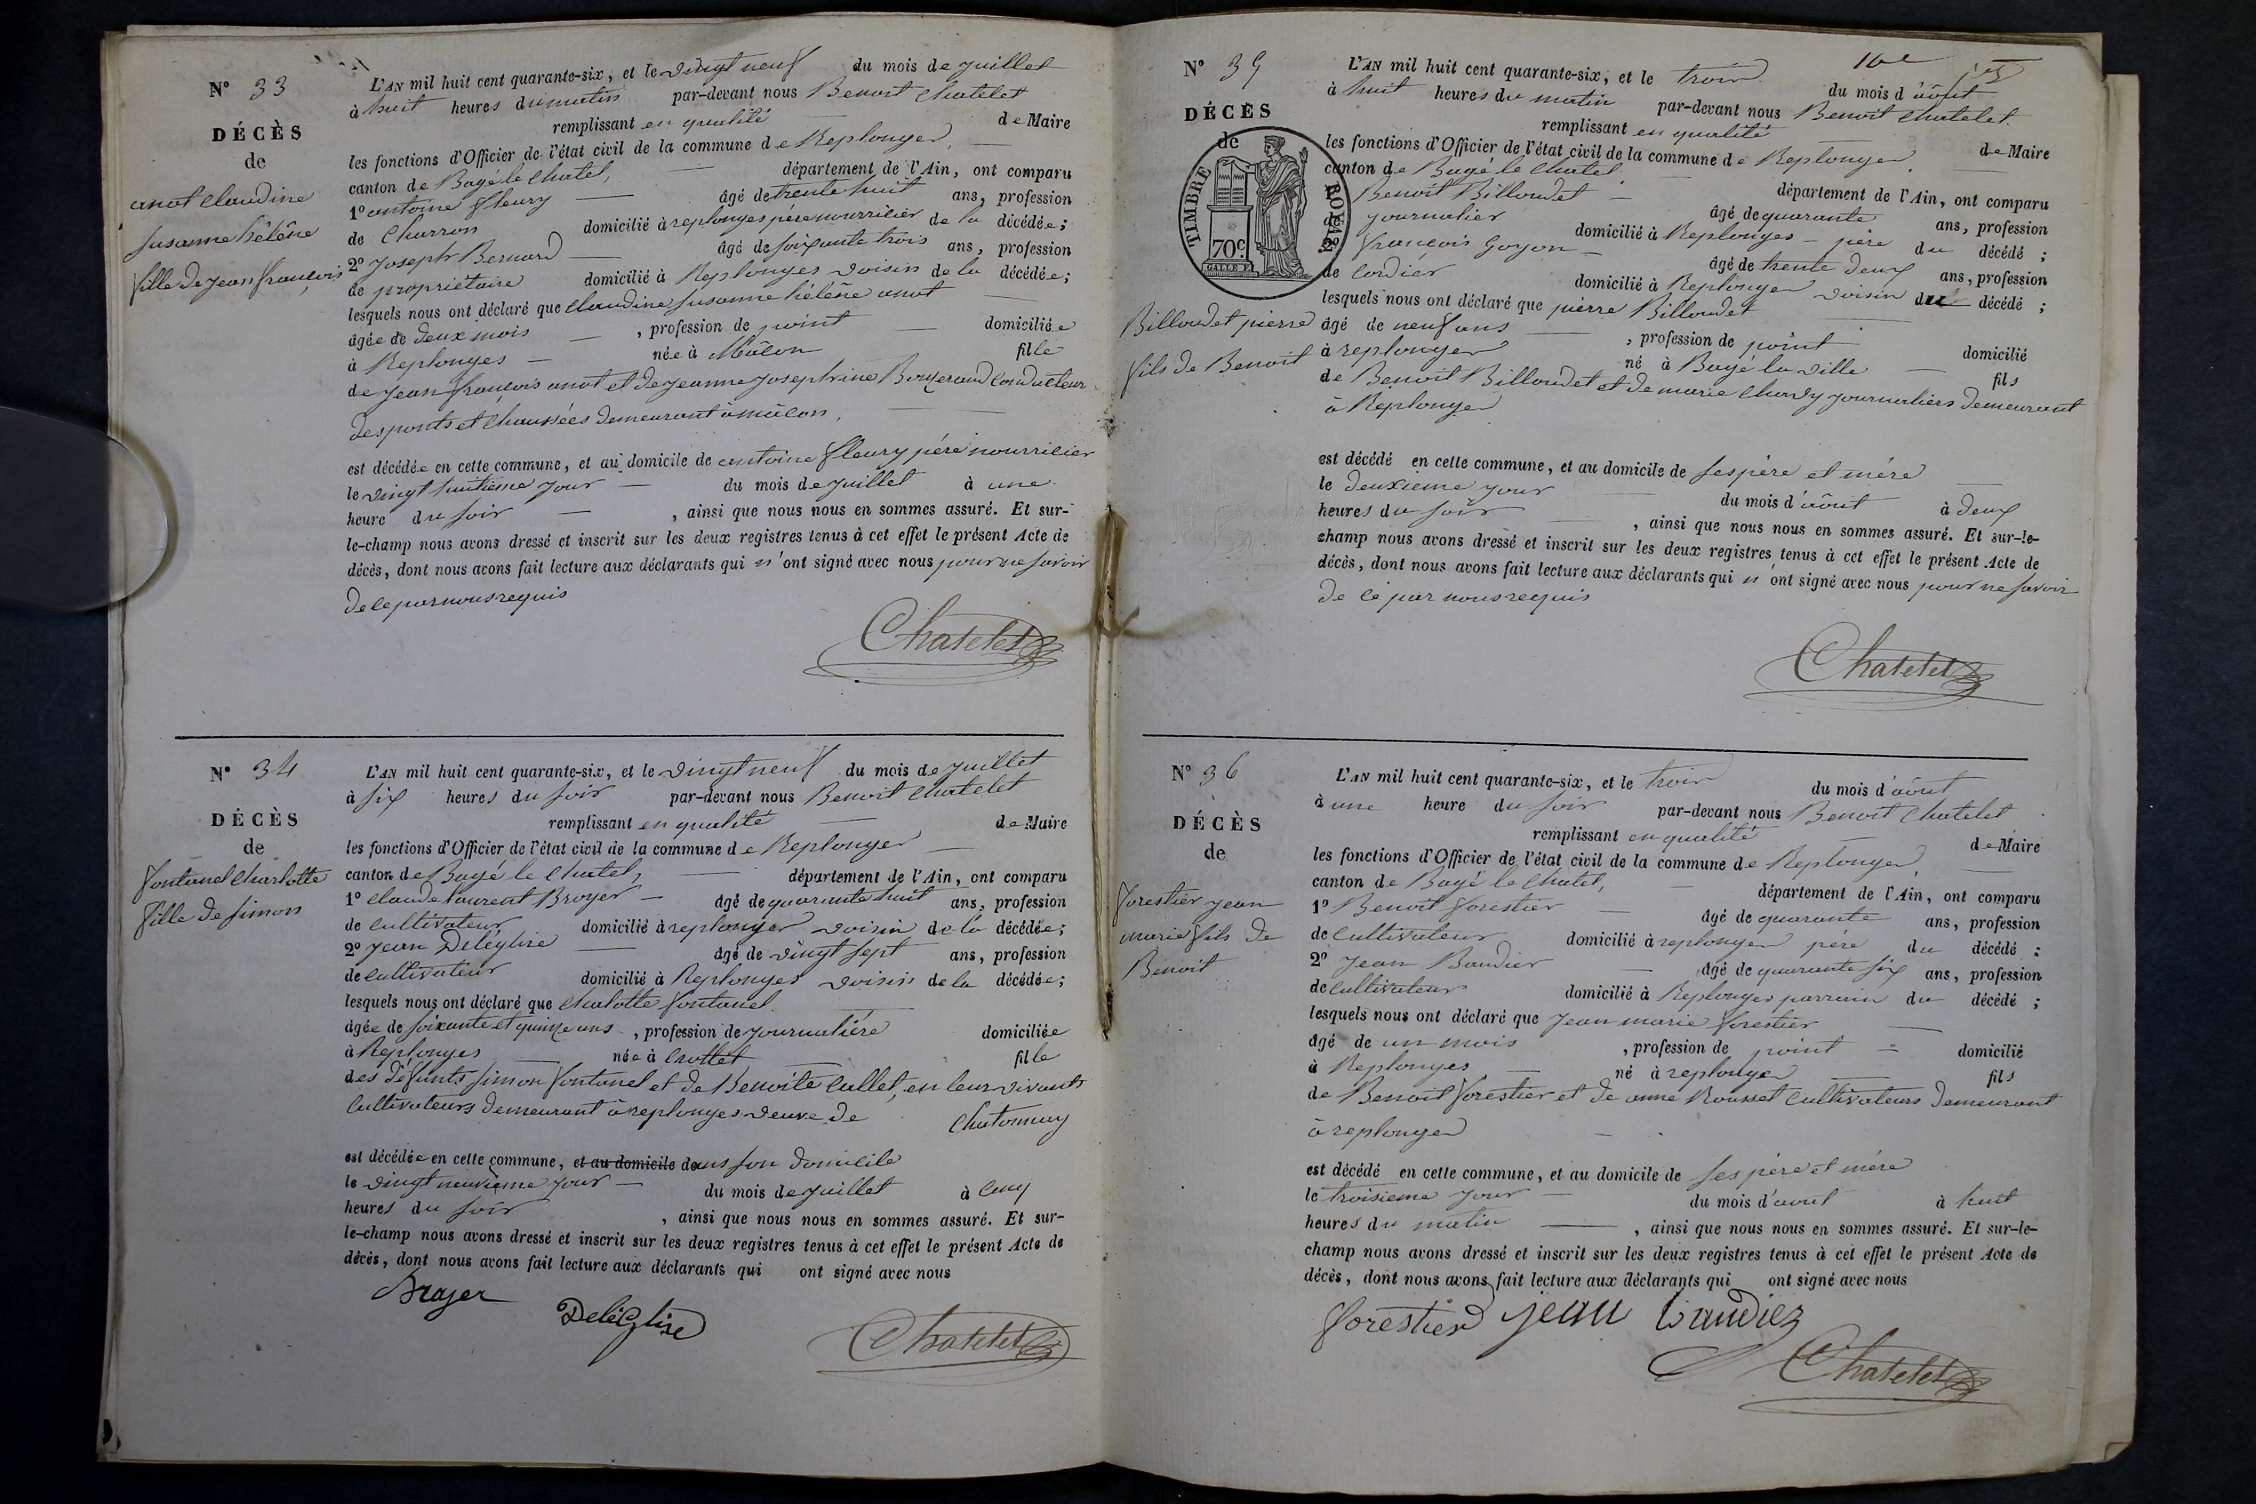 N° 33
DÉCÈS
de
anot Claudine
Susanne hélêne
fille de jean françois
L'AN mil huit cent quarante-six, et le vingt neuf du mois de juillet
à huit heures du matin par-devant nous Benoit Chatelet
remplissant en qualité de Maire
les fonctions d'Officier de l'état civil de la commune de Replonges
canton de Bagé le Chatel, département de l'Ain, ont comparu
1° antoine fleury âgé de trente huit ans, profession
de Charron domicilié à replonges père nourricier de la décédée;
2° Joseph Bernard âgé de soixante trois ans, profession
de propriétaire domicilié à Replonges voisin de la décédée;
lesquels nous ont déclaré que Claudine Susanne hélêne anot
âgée de deux mois, profession de point domiciliée
à Replonges née à Mâcon fille
de jean françois anot et de jeanne josephine Conducteur
des ponts et chaussées demeurant à mâcon,
est décédée en cette commune, et au domicile de antoine fleury père nourricier
le vingt huitième jour du mois de juillet à une
heure du soir, ainsi que nous nous en sommes assuré. Et sur-
le-champ nous avons dressé et inscrit sur les deux registres tenus à cet effet le présent Acte de
décès, dont nous avons fait lecture aux déclarants qui n'ont signé avec nous pour ne savoir
de ce par nous requis
Chatelet
N° 34
DÉCÈS
de
fontanel Charlotte
fille de simon
L'AN mil huit cent quarante-six, et le vingt neuf du mois de juillet
à six heures du soir par-devant nous Benoit Chatelet
remplissant en qualité de Maire
les fonctions d'Officier de l'état civil de la commune de Replonges
canton de Bagé le Chatel, département de l'Ain, ont comparu
1° Claude Laurent Broyer âgé de quarante huit ans, profession
de cultivateur domicilié à replonges voisin de la décédée;
2° jean Deléglise âgé de vingt sept ans, profession
de cultivateur domicilié à Replonges voisin de la décédée;
lesquels nous ont déclaré que Charlotte fontanel
âgée de soixante et quinze ans, profession de journalière domiciliée
à Replonges née à Crottet fille
des défunts simon fontanel et de Benoite Cullet, en leur vivants
Cultivateurs demeurant à replonges veuve de Chatonnay
est décédée en cette commune, et au domicile dans son domicile
le vingt neuvième jour du mois de juillet à cinq
heures du soir, ainsi que nous nous en sommes assuré. Et sur-
le-champ nous avons dressé et inscrit sur les deux registres tenus à cet effet le présent Acte de
décès, dont nous avons fait lecture aux déclarants qui ont signé avec nous
Broyer Deléglise
Chatelet
N° 35
DÉCÈS
de
TIMBRE ROYAL
70c
Billoudet pierre
fils de Benoit
L'AN mil huit cent quarante-six, et le trois du mois d'août
à huit heures du matin par-devant nous Benoit Chatelet
remplissant en qualité de Maire
les fonctions d'Officier de l'état civil de la commune de Replonges
canton de Bagé le Chatel département de l'Ain, ont comparu
Benoit Billoudet âgé de quarante ans, profession
de journalier domicilié à Replonges père du décédé;
2° françois Goyon âgé de trente deux ans, profession
de Cordier domicilié à Replonges voisin du décédé;
lesquels nous ont déclaré que pierre Billoudet
âgé de neuf ans, profession de point domicilié
à replonges né à Bagé la ville fils
de Benoit Billoudet et de marie Chardy journaliers demeurant
à Replonges
est décédé en cette commune, et au domicile de ses père et mère
le deuxieme jour du mois d'août à deux
heures du soir, ainsi que nous nous en sommes assuré. Et sur-le-
champ nous avons dressé et inscrit sur les deux registres tenus à cet effet le présent Acte de
décès, dont nous avons fait lecture aux déclarants qui n'ont signé avec nous pour ne savoir
de ce par nous requis
Chatelet
N° 36
DÉCÈS
de
forestier jean
marie fils de
Benoit
L'AN mil huit cent quarante-six, et le trois du mois d'août
à une heure du soir par-devant nous Benoit Chatelet
remplissant en qualité de Maire
les fonctions d'Officier de l'état civil de la commune de Replonges,
canton de Bagé le Chatel, département de l'Ain, ont comparu
1° Benoit forestier âgé de quarante ans, profession
de Cultivateur domicilié à replonges père du décédé;
2° Jean Baudier âgé de quarante six ans, profession
de Cultivateur domicilié à Replonges parrain du décédé;
lesquels nous ont déclaré que jean marie forestier
âgé de un mois, profession de point domicilié
à Replonges né à replonges fils
de Benoit forestier et de anne Rousset Cultivateurs demeurant
à replonges
est décédé en cette commune, et au domicile de ses père et mère
le troisieme jour du mois d'aout à huit
heures du matin, ainsi que nous nous en sommes assuré. Et sur-le-
champ nous avons dressé et inscrit sur les deux registres tenus à cet effet le présent Acte de
décès, dont nous avons fait lecture aux déclarants qui ont signé avec nous
forestier jean baudiez
Chatelet